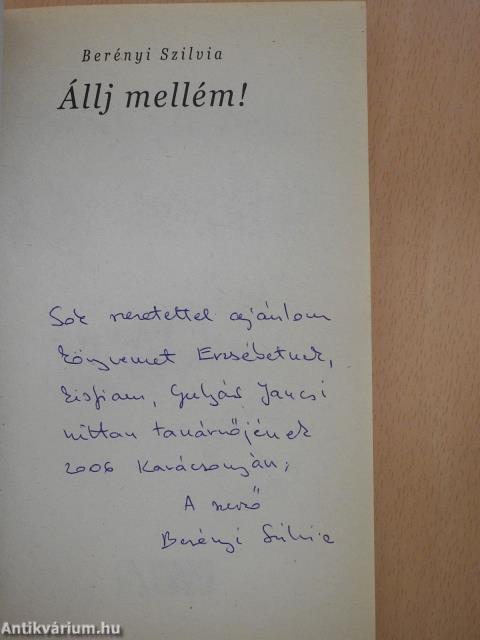 Berényi Szilvia
Állj mellém!
Sok szeretettel ajánlom
könyvemet Erzsébetnek,
kisfiam, Gulyás Jancsi
hittan tanárnőjének
2006 Karácsonyán;
A szerző
Berényi Szilvia
Antikvárium.hu